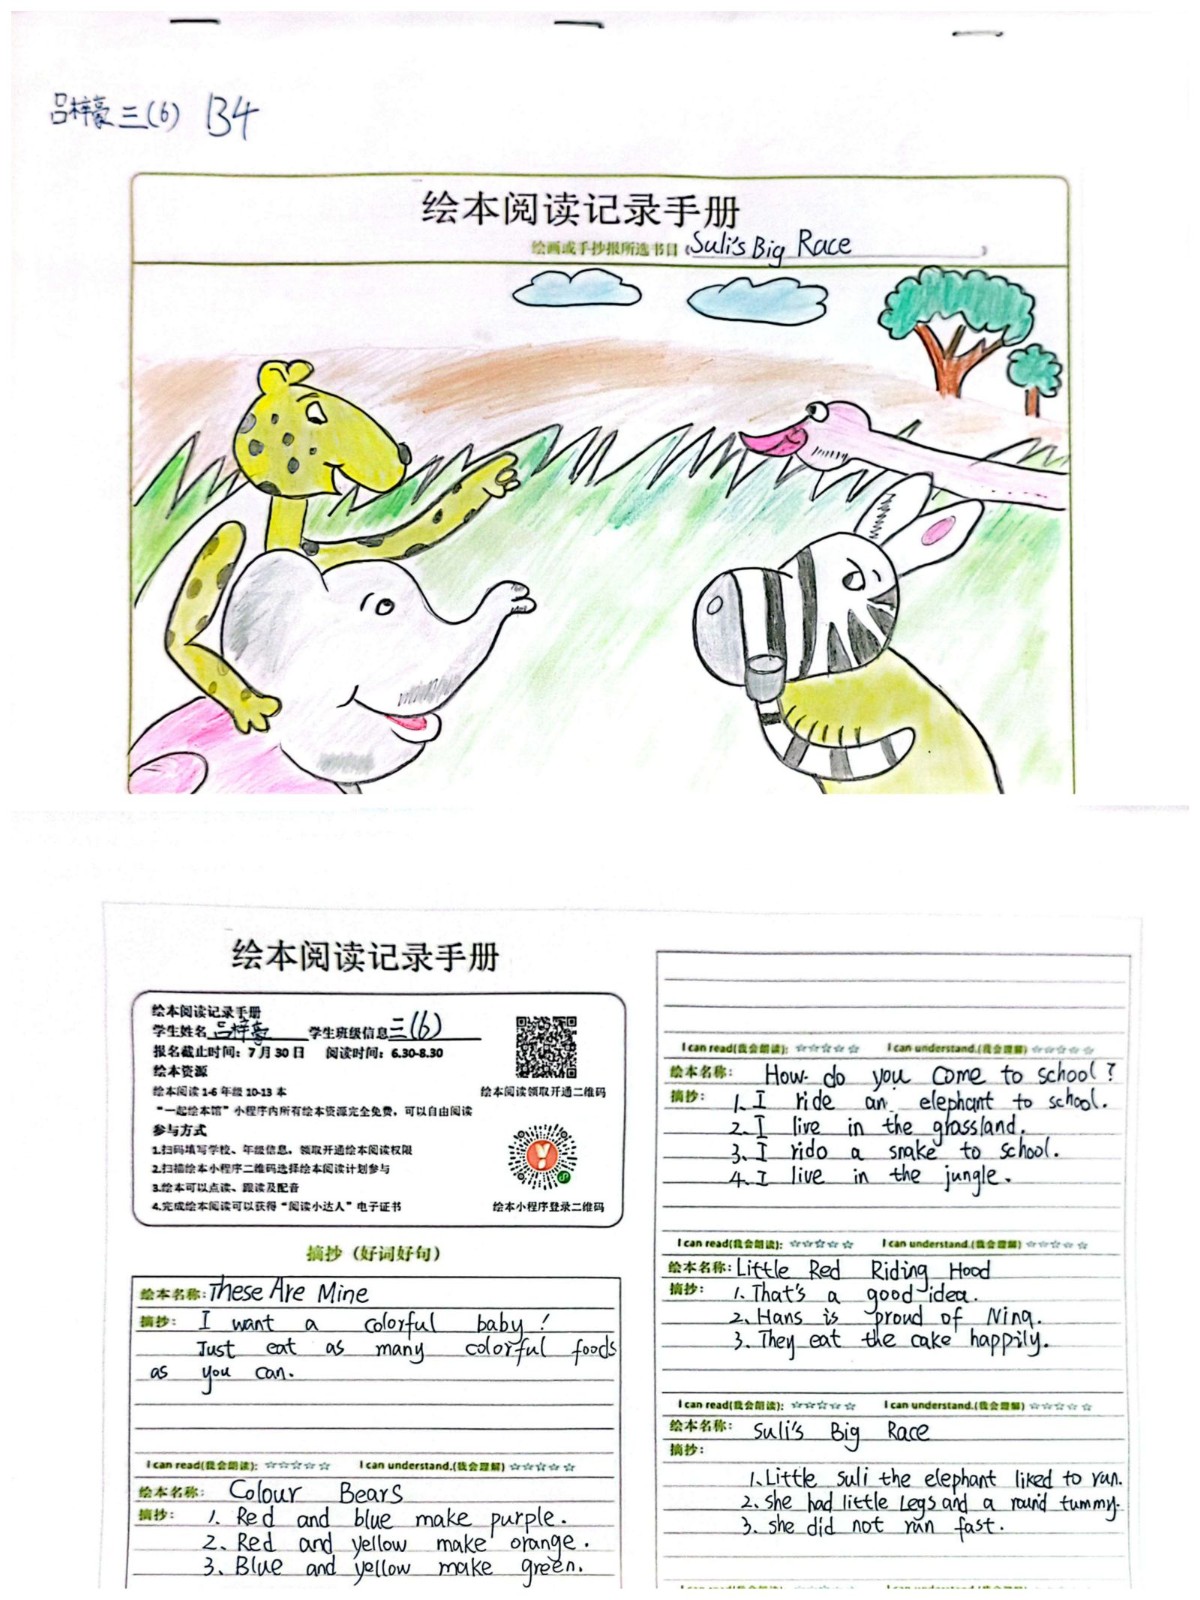 吕梓豪 三(6) B4
绘本阅读记录手册
绘画或手抄报所选书目《Suli's Big Race》
绘本阅读记录手册
绘本阅读记录手册
学生姓名 吕梓豪 学生班级信息 三(6)
报名截止时间：7月30日 阅读时间：6.30-8.30
绘本资源
绘本阅读1-6年级10-13本
“一起绘本馆”小程序内所有绘本资源完全免费，可以自由阅读
参与方式
1.扫码填写学校、年级信息，领取开通绘本阅读权限
2.扫描绘本小程序二维码选择绘本阅读计划参与
3.绘本可以点读、跟读及配音
4.完成绘本阅读可以获得“阅读小达人”电子证书
绘本阅读领取开通二维码
绘本小程序登录二维码
摘抄（好词好句）
绘本名称: These Are Mine
摘抄: I want a colorful baby!
Just eat as many colorful foods
as you can.
I can read(我会朗读): ☆☆☆☆☆ I can understand.(我会理解) ☆☆☆☆☆
绘本名称: Colour Bears
摘抄: 1. Red and blue make purple.
2. Red and yellow make orange.
3. Blue and yellow make green.
I can read(我会朗读): ☆☆☆☆☆ I can understand.(我会理解) ☆☆☆☆☆
绘本名称: How do you come to school?
摘抄: 1. I ride an elephant to school.
2. I live in the grassland.
3. I rido a snake to school.
4. I live in the jungle.
I can read(我会朗读): ☆☆☆☆☆ I can understand.(我会理解) ☆☆☆☆☆
绘本名称: Little Red Riding Hood
摘抄: 1. That's a good idea.
2. Hans is proud of Nina.
3. They eat the cake happily.
I can read(我会朗读): ☆☆☆☆☆ I can understand.(我会理解) ☆☆☆☆☆
绘本名称: Suli's Big Race
摘抄:
1. Little Suli the elephant liked to run.
2. she had little Legs and a round tummy.
3. she did not run fast.